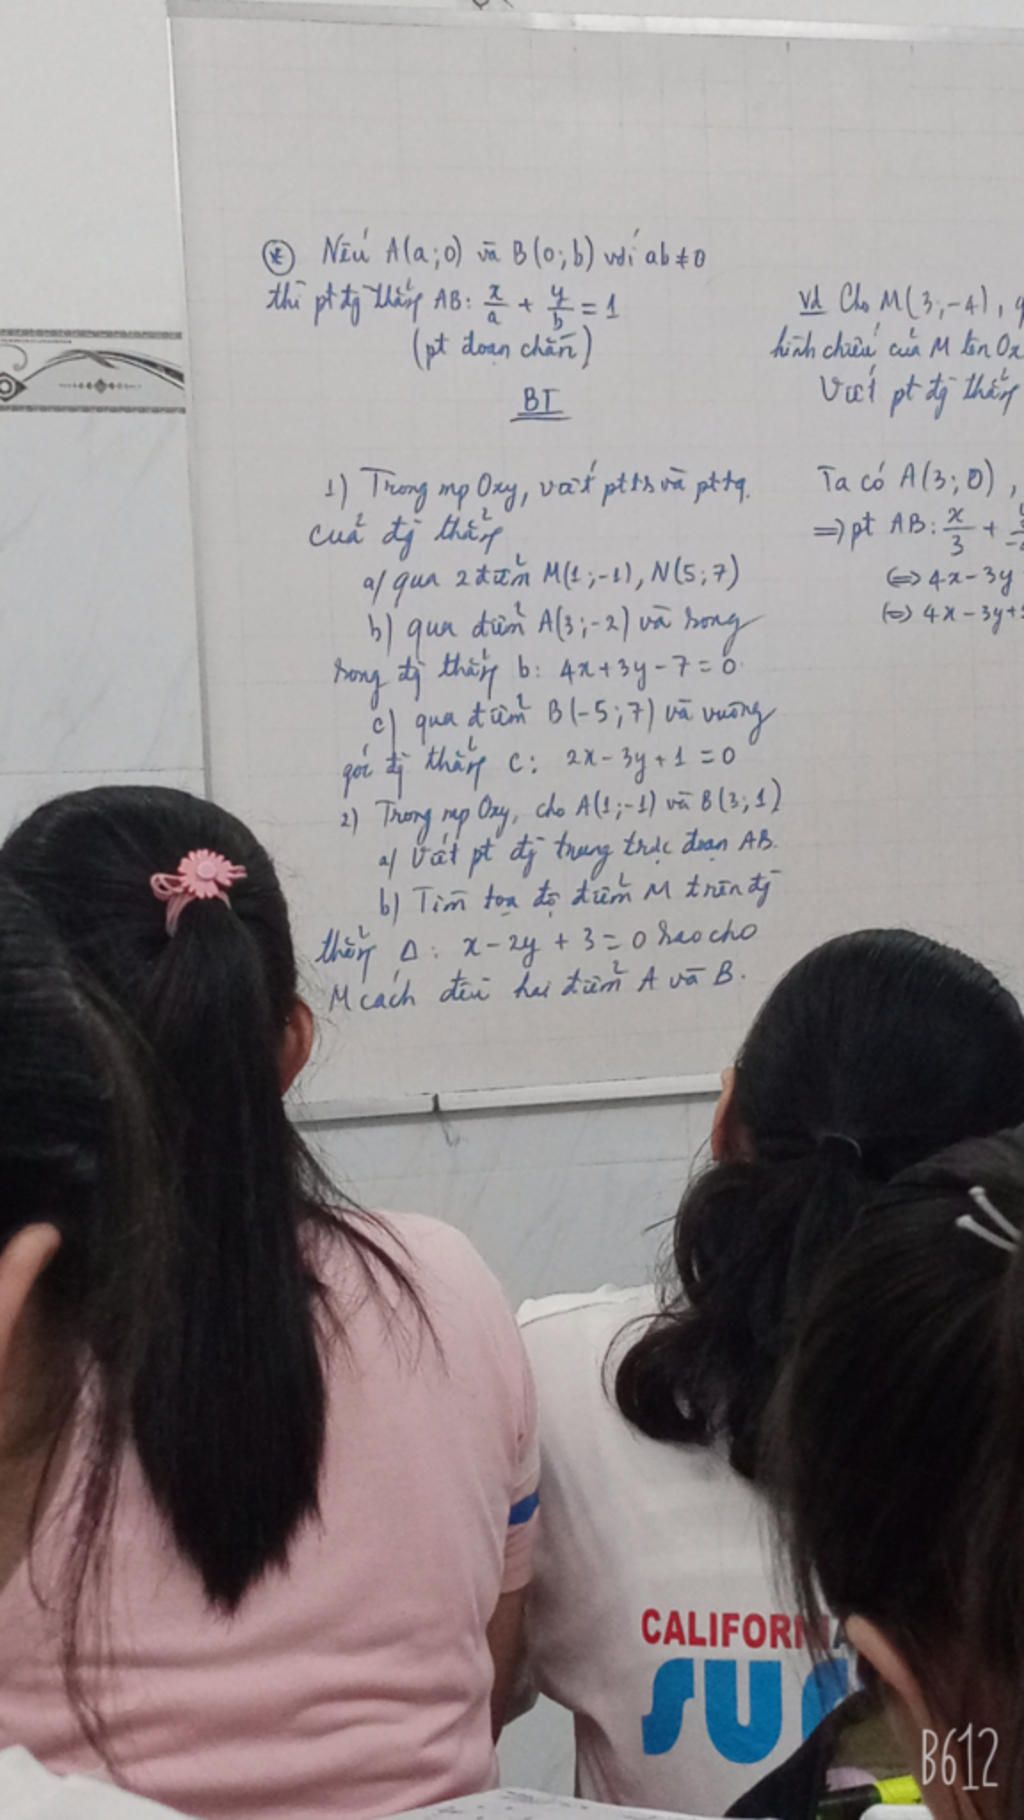 * Nếu A(a;0) và B(0;b) với ab≠0
thì pt đg thẳng AB: x/a + y/b = 1
(pt đoạn chắn)
BT
1) Trong mp Oxy, viết ptts và pttq
của đg thẳng
a/ qua 2 điểm M(1;-1), N(5;7)
b) qua điểm A(3;-2) và song
song đg thẳng b: 4x+3y-7=0
c) qua điểm B(-5;7) và vuông
góc đg thẳng c: 2x-3y+1=0
2) Trong mp Oxy, cho A(1;-1) và B(3;1)
a/ Viết pt đg trung trực đoạn AB.
b) Tìm toạ độ điểm M trên đg
thẳng Δ: x-2y+3=0 sao cho
M cách đều hai điểm A và B.
vd Cho M(3;-4),
hình chiếu của M lên Ox
Viết pt đg thẳng
Ta có A(3;0),
⇒ pt AB: x/3 +
⇔ 4x-3y
⇔ 4x-3y+
CALIFOR
SU
B612